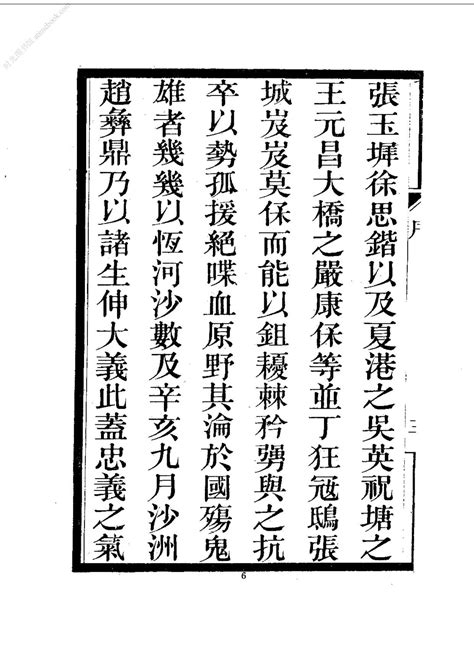 張玉墀徐思鍇以及夏港之吳英祝塘之
王元昌大橋之嚴康保等並丁狂寇鴟張
城岌岌莫保而能以鉏耰棘矜彊與之抗
卒以勢孤援絕喋血原野其淪於國殤鬼
雄者幾幾以恆河沙數及辛亥九月沙洲
趙彝鼎乃以諸生伸大義此蓋忠義之氣
6